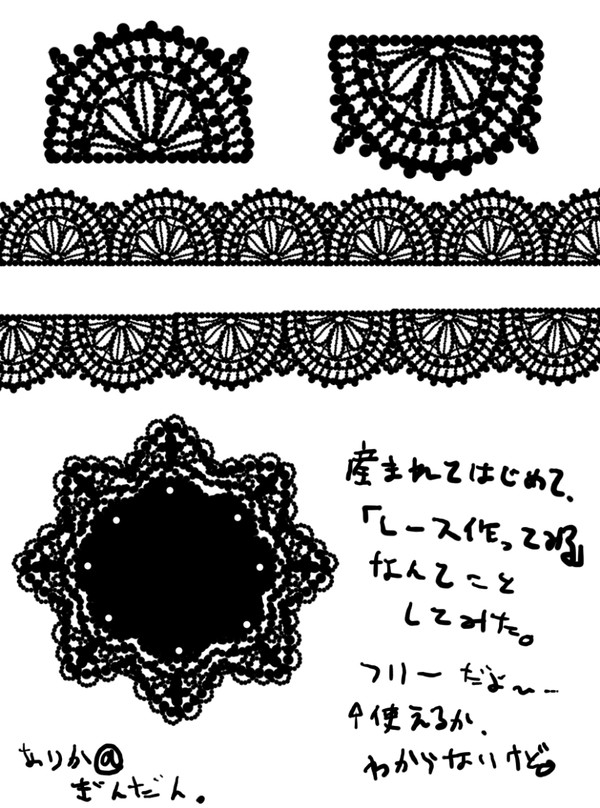 産まれてはじめて、
「レース作ってみる」
なんてこと
してみた。
フリーだよ〜…
↑使えるか、
わからないけど。
ありか@
ぎんだん。